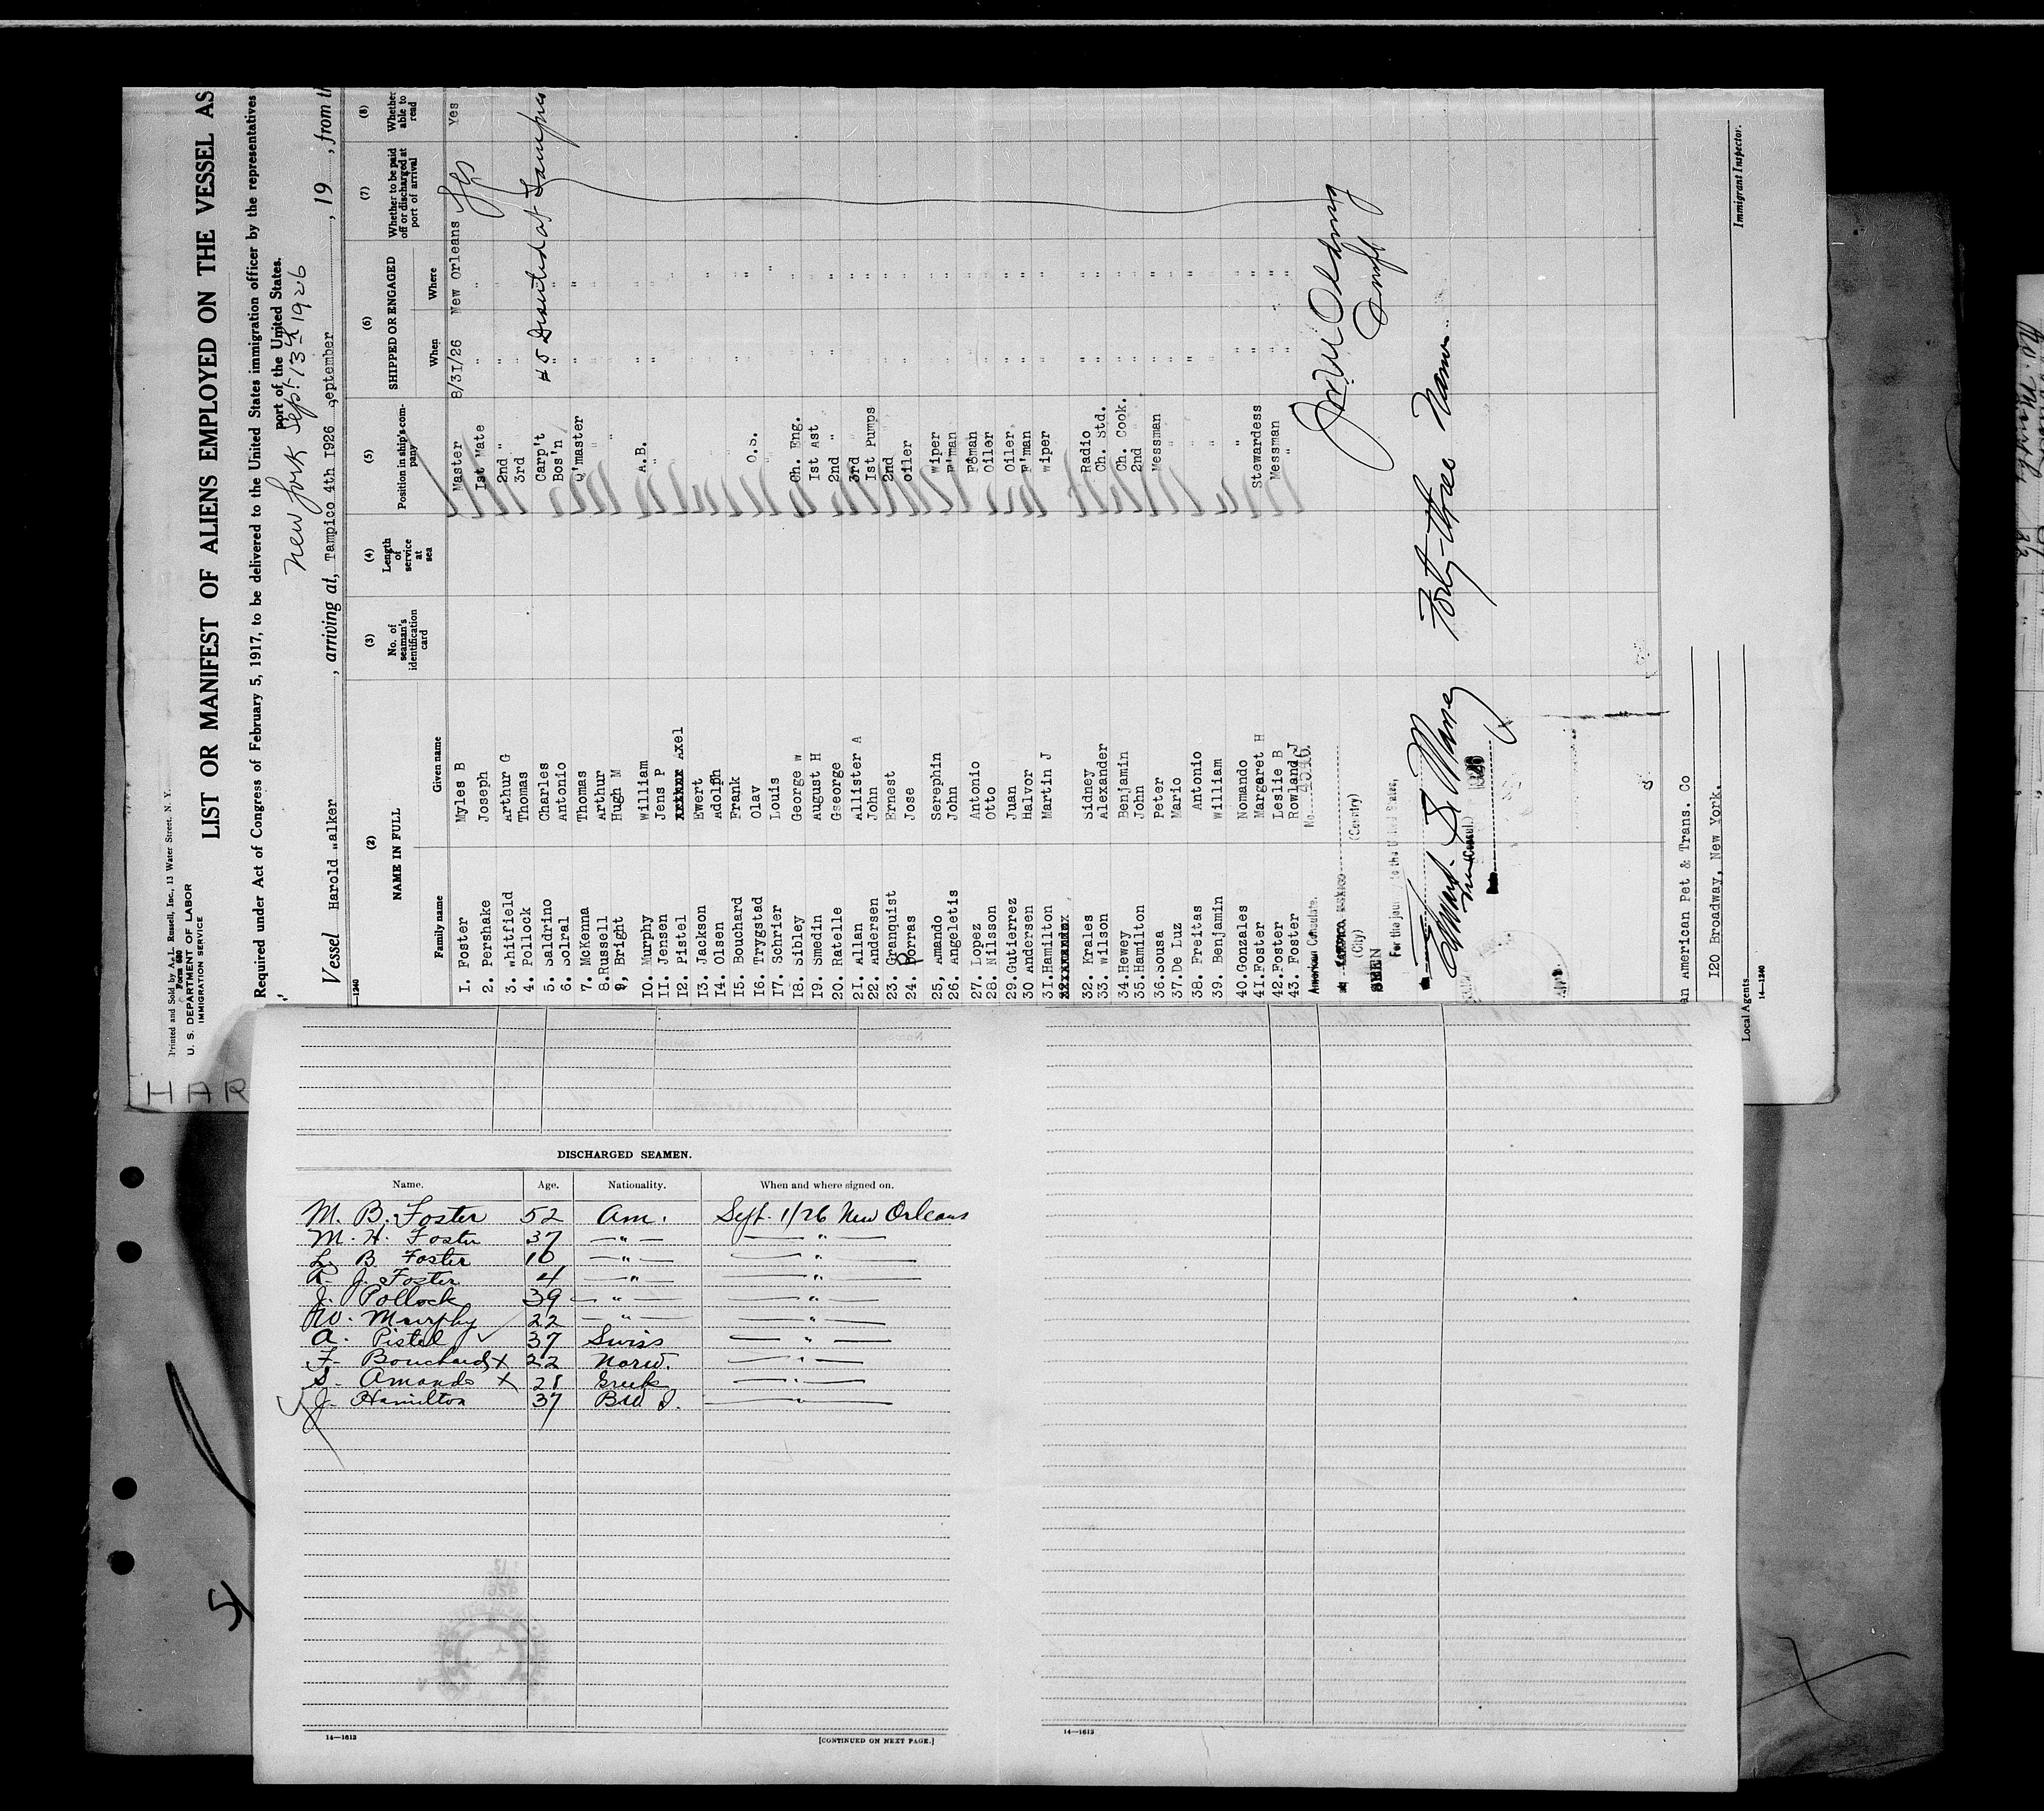 Printed and Sold by A. L. Russell, Inc., 13 Water Street, N. Y.
Form 680
U. S. DEPARTMENT OF LABOR
IMMIGRATION SERVICE
LIST OR MANIFEST OF ALIENS EMPLOYED ON THE VESSEL AS
Required under Act of Congress of February 5, 1917, to be delivered to the United States immigration officer by the representatives
port of the United States.
New York Sept 13th 1926
Vessel Harold Walker, arriving at, Tampico 4th 1926 September, 19, from th
(2) NAME IN FULL
Family name Given name
(3) No. of seaman's identification card
(4) Length of service at sea
(5) Position in ship's company
(6) SHIPPED OR ENGAGED
When Where
(7) Whether to be paid off or discharged at port of arrival
(8) Whether able to read
1. Foster Myles B Master 8/31/26 New Orleans Yes Yes
2. Pershake Joseph 1st Mate " "
3. Whitfield Arthur G 2nd " " "
4. Pollock Thomas 3rd " "
5. Saldrino Charles Carp't #5 Deserted at Tampico
6. Solral Antonio Bos'n " "
7. McKenna Thomas Q'master " "
8. Russell Arthur "
9, Bright Hugh M "
10. Murphy William A.B. " "
11. Jensen Jens P " "
12. Pistel Axel
13. Jackson Ewert
14. Olsen Adolph
15. Bouchard Frank
16. Trygstad Olav O.S.
17. Schrier Louis "
18. Sibley George W Ch. Eng.
19. Smedin August H 1st Ast
20. Ratelle George 2nd "
21. Allan Allister A 3rd "
22. Andersen John 1st Pumps
23. Granquist Ernest 2nd
24. Porras Jose Oiler
25, Amando Serephin Wiper
26. Angeletis John F'man
27. Lopez Antonio F'man
28. Nilsson Otto Oiler
29. Gutierrez Juan Oiler
30 Andersen Halvor F'man
31. Hamilton Martin J Wiper
32. Krales Sidney Radio
33. Wilson Alexander Ch. Std.
34. Hewey Benjamin Ch. Cook.
35. Hamilton John 2nd "
36. Sousa Peter Messman
37. De Luz Mario "
38. Freitas Antonio "
39. Benjamin William "
40. Gonzales Nomando "
41. Foster Margaret H Stewardess
42. Foster Leslie B Messman
43. Foster Rowland J "
American Consulate.
(City) (Country)
SEEN
For the journey to the United States,
Forty-three Names
an American Pet & Trans. Co
120 Broadway, New York.
Local Agents
14—1240
Immigrant Inspector.
HAR
DISCHARGED SEAMEN.
Name. Age. Nationality. When and where signed on.
M. B. Foster 52 Am. Sept. 1/26 New Orleans
M. H. Foster 37 " "
L. B. Foster 10 " "
R. J. Foster 4 " "
J. Pollock 39 " "
W. Murphy 22 " "
A. Pistel 37 Swiss "
F. Bouchard x 22 Norw. "
S. Amando x 28 Greek "
J. Hamilton 37 BW I. "
14—1613
[CONTINUED ON NEXT PAGE.]
14—1613